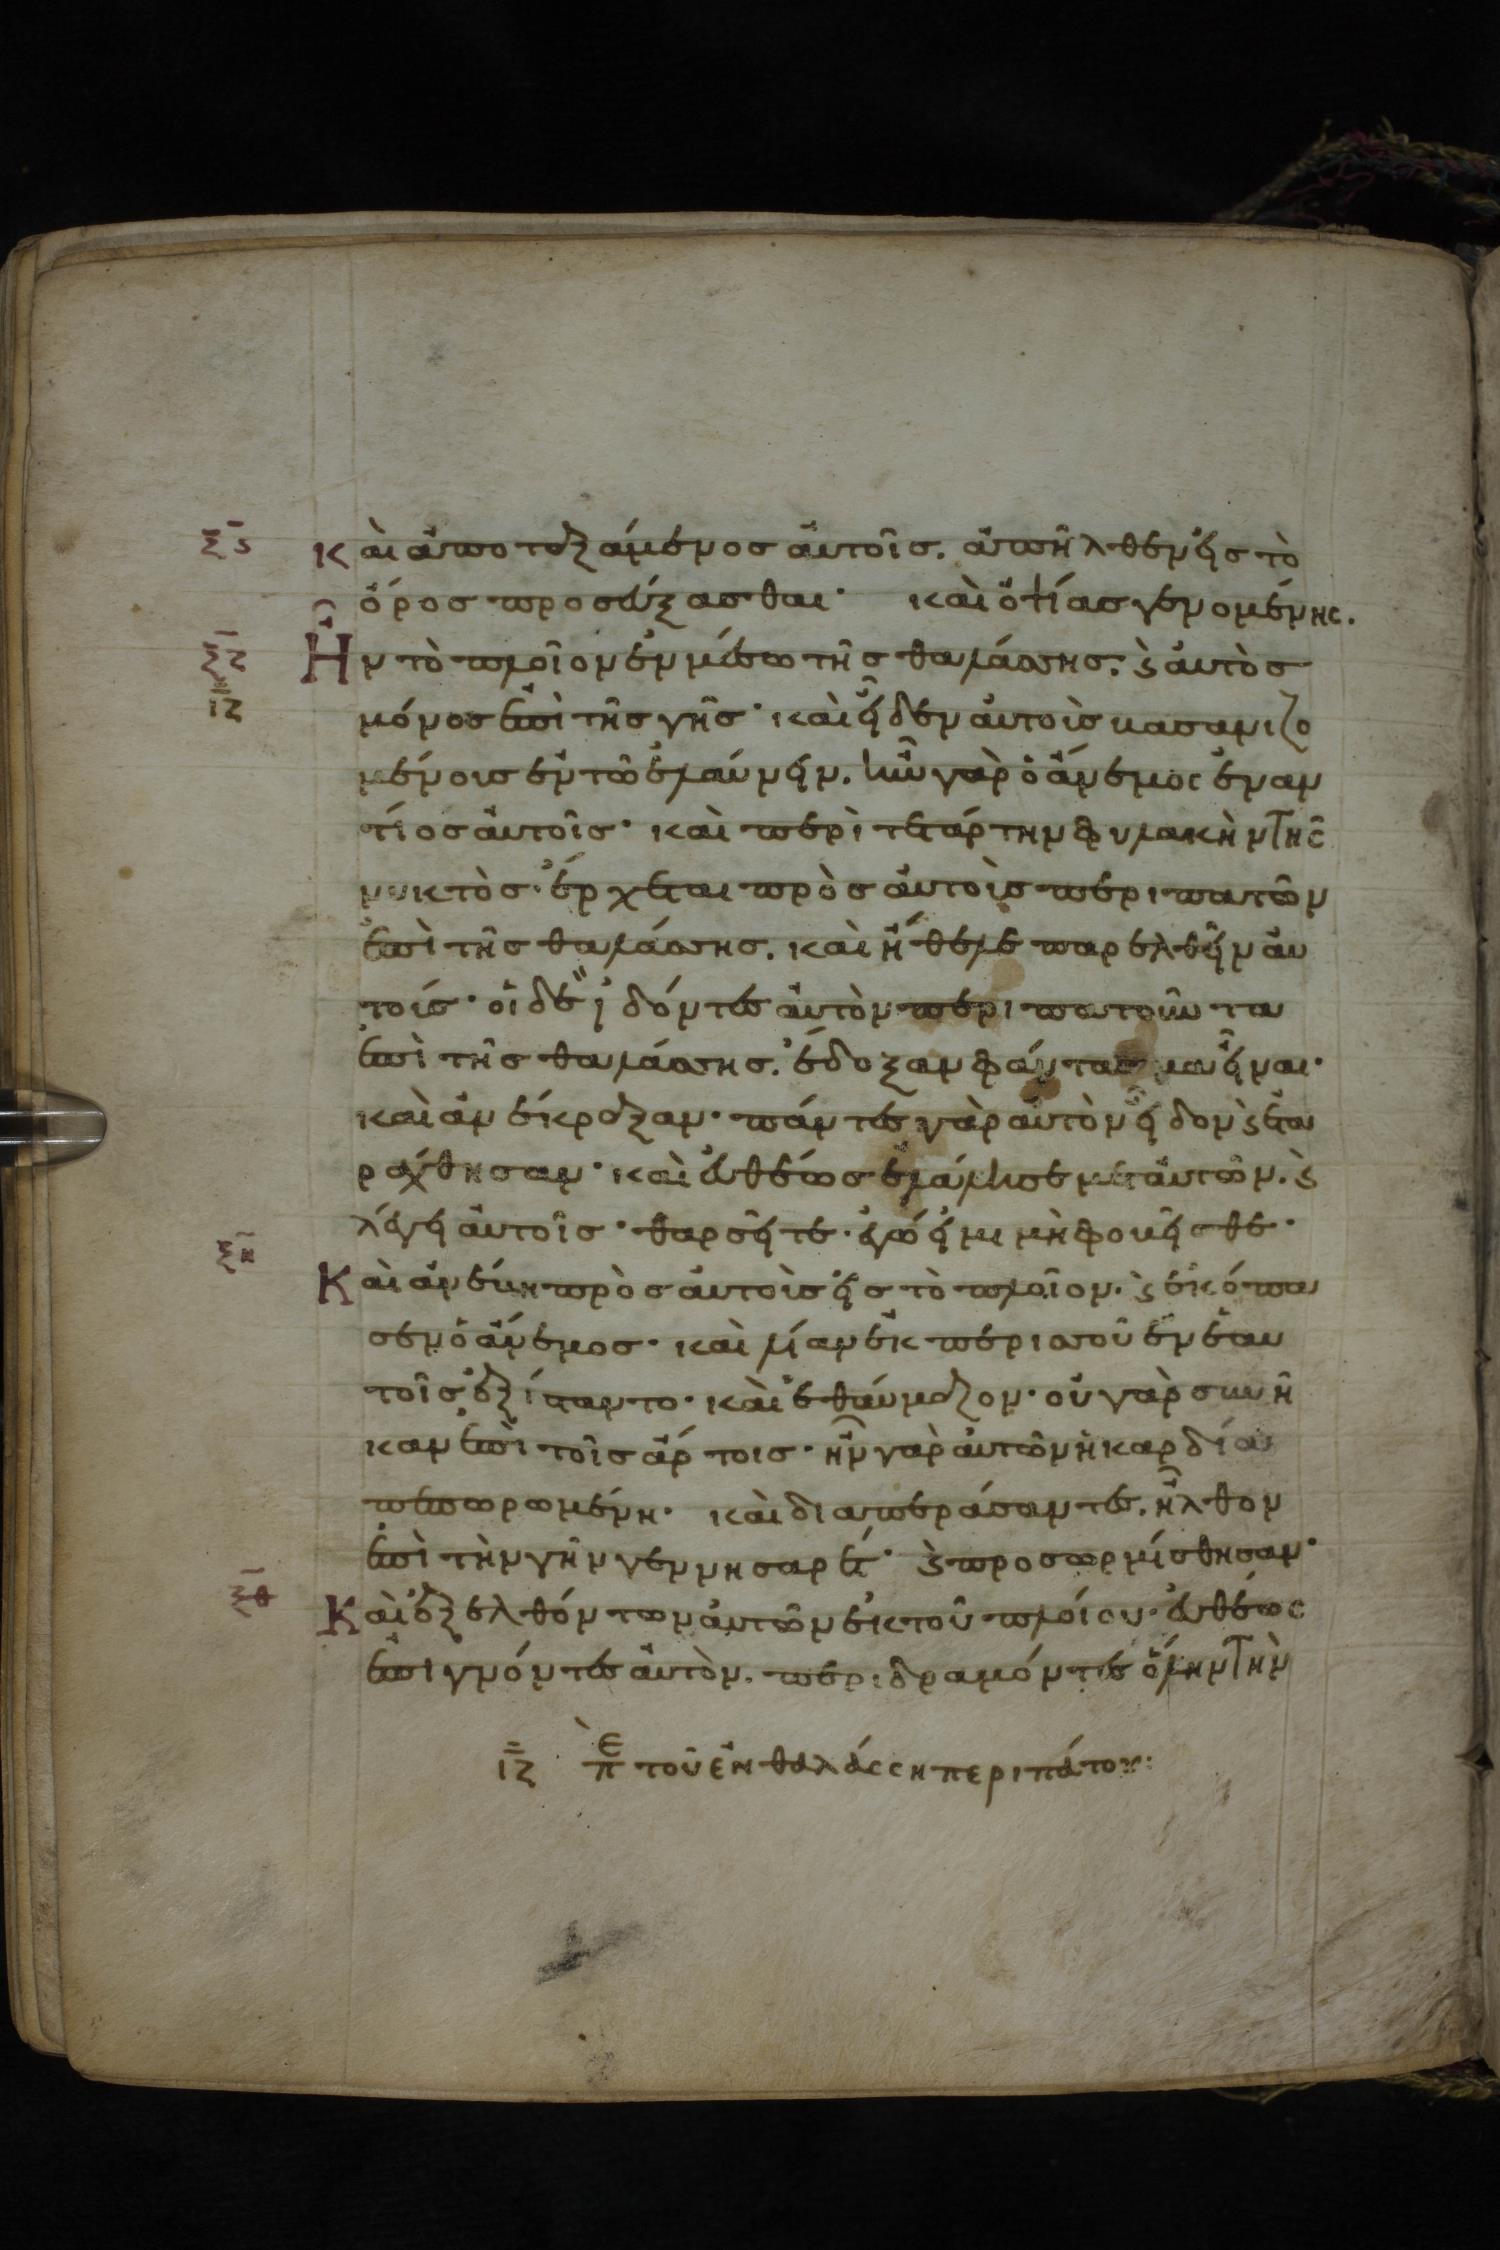 ξϛ καὶ ἀποταξάμενος αὐτοῖς. ἀπῆλθεν εἰς τὸ
ὄρος προσεύξασθαι· καὶ ὀψίας γενομένης.
ξζ Ἦν τὸ πλοῖον ἐν μέσω τῆς θαλάσσης. ϗ αὐτὸς
ιζ μόνος ἐπὶ τῆς γῆς· καὶ εἶδεν αὐτοὺς βασανιζο
μένους ἐν τῶ ἐλαύνειν. ἦν γὰρ ὁ ἄνεμος ἐναν
τίος αὐτοῖς· καὶ περὶ τετάρτην φυλακὴν τῆς
νυκτὸς· ἔρχεται πρὸς αὐτοὺς περιπατῶν
ἐπὶ τῆς θαλάσσης. καὶ ἤθελε παρελθεῖν αὐ
τούς· οἱ δὲ ἰδόντες αὐτὸν περιπατοῦντα
ἐπὶ τῆς θαλάσσης. ἔδοξαν φάντασμα εἶναι·
καὶ ἀνέκραξαν· πάντες γὰρ αὐτὸν εἶδον ϗ ἐτα
ράχθησαν· καὶ εὐθέως ἐλάλησε μετ αὐτῶν. ϗ
λέγει αὐτοῖς· θαρσεῖτε· ἐγώ εἰμι μὴ φοβεῖσθε·
ξη Καὶ ἀνέβη πρὸς αὐτοὺς εἰς τὸ πλοῖον. ϗ ἐκόπα
σεν ὁ ἄνεμος· καὶ λίαν ἐκ περισσοῦ ἐν ἑαυ
τοῖς ἐξίσταντο· καὶ ἐθαύμαζον· οὐ γὰρ συνῆ
καν ἐπὶ τοῖς ἄρτοις· ἦν γὰρ αὐτῶν ἡ καρδία
πεπωρωμένη· καὶ διαπεράσαντες. ἦλθον
ἐπὶ τὴν γῆν γεννησαρέτ· ϗ προσωρμίσθησαν·
ξθ Καὶ ἐξελθόντων αὐτῶν ἐκ τοῦ πλοίου· εὐθέως
ἐπιγνόντες αὐτὸν. περιδραμόντες ὅλην τὴν
ιζ πε τοῦ ἐν θαλάσση περιπάτου: